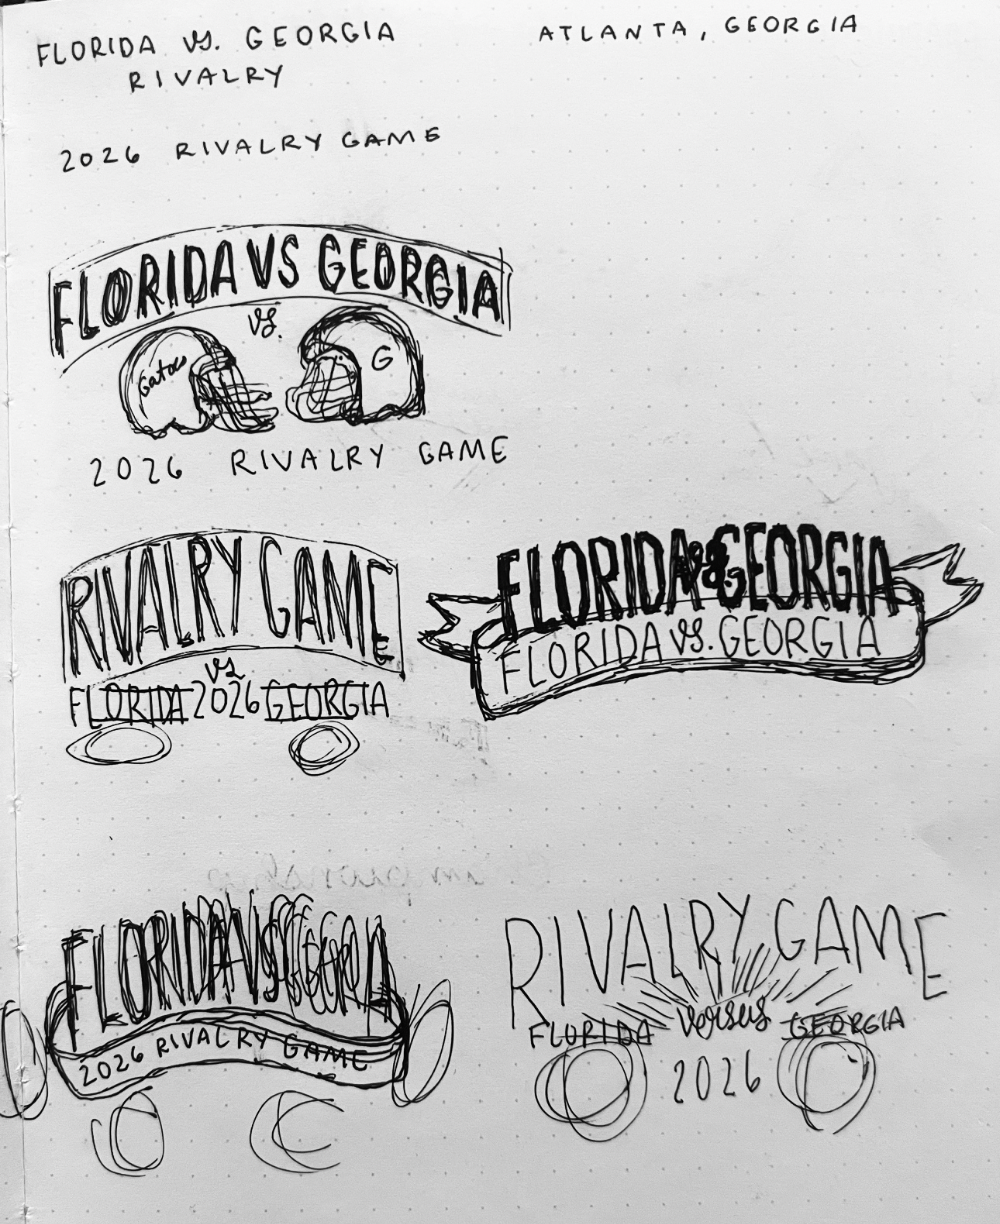 FLORIDA vs. GEORGIA
RIVALRY
ATLANTA, GEORGIA
2026 RIVALRY GAME
FLORIDA VS GEORGIA
vs.
Gators
G
2026 RIVALRY GAME
RIVALRY GAME
vs
FLORIDA 2026 GEORGIA
FLORIDA vs. GEORGIA
FLORIDA vs. GEORGIA
FLORIDA VS GEORGIA
2026 RIVALRY GAME
RIVALRY GAME
FLORIDA versus GEORGIA
2026